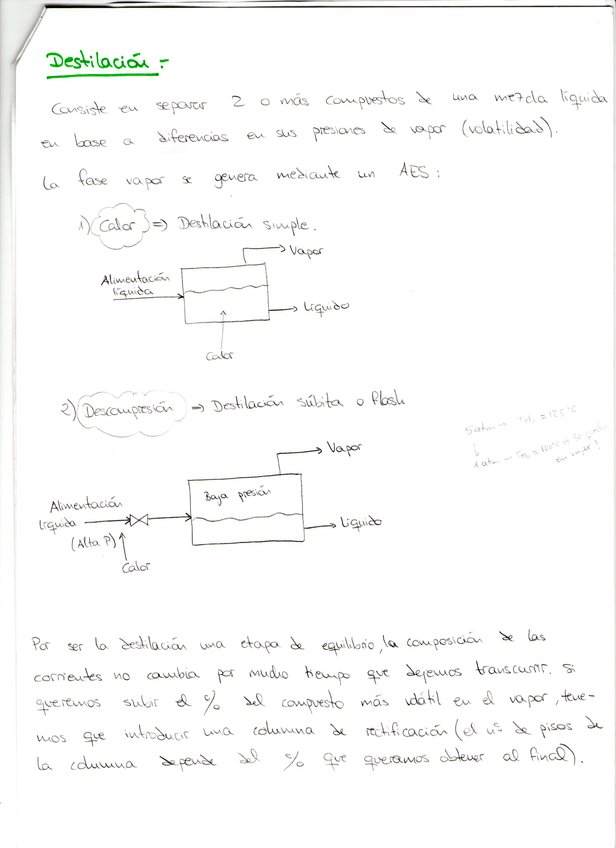 Destilación:-
Consiste en separar 2 o más compuestos de una mezcla líquida
en base a diferencias en sus presiones de vapor (volatilidad).
La fase vapor se genera mediante un AES:
1) Calor => Destilación simple.
Vapor
Alimentación
líquida
Líquido
Calor
2) Descompresión => Destilación súbita o flash
5 atm → Teb = 125°C
↓
1 atm → Teb = 100°C
Vapor
Baja presión
Alimentación
líquida
(Alta P)
Líquido
Calor
Por ser la destilación una etapa de equilibrio, la composición de las
corrientes no cambia por mucho tiempo que dejemos transcurrir. Si
queremos subir el % del compuesto más volátil en el vapor, tene-
mos que introducir una columna de rectificación (el nº de pisos de
la columna depende del % que queramos obtener al final).